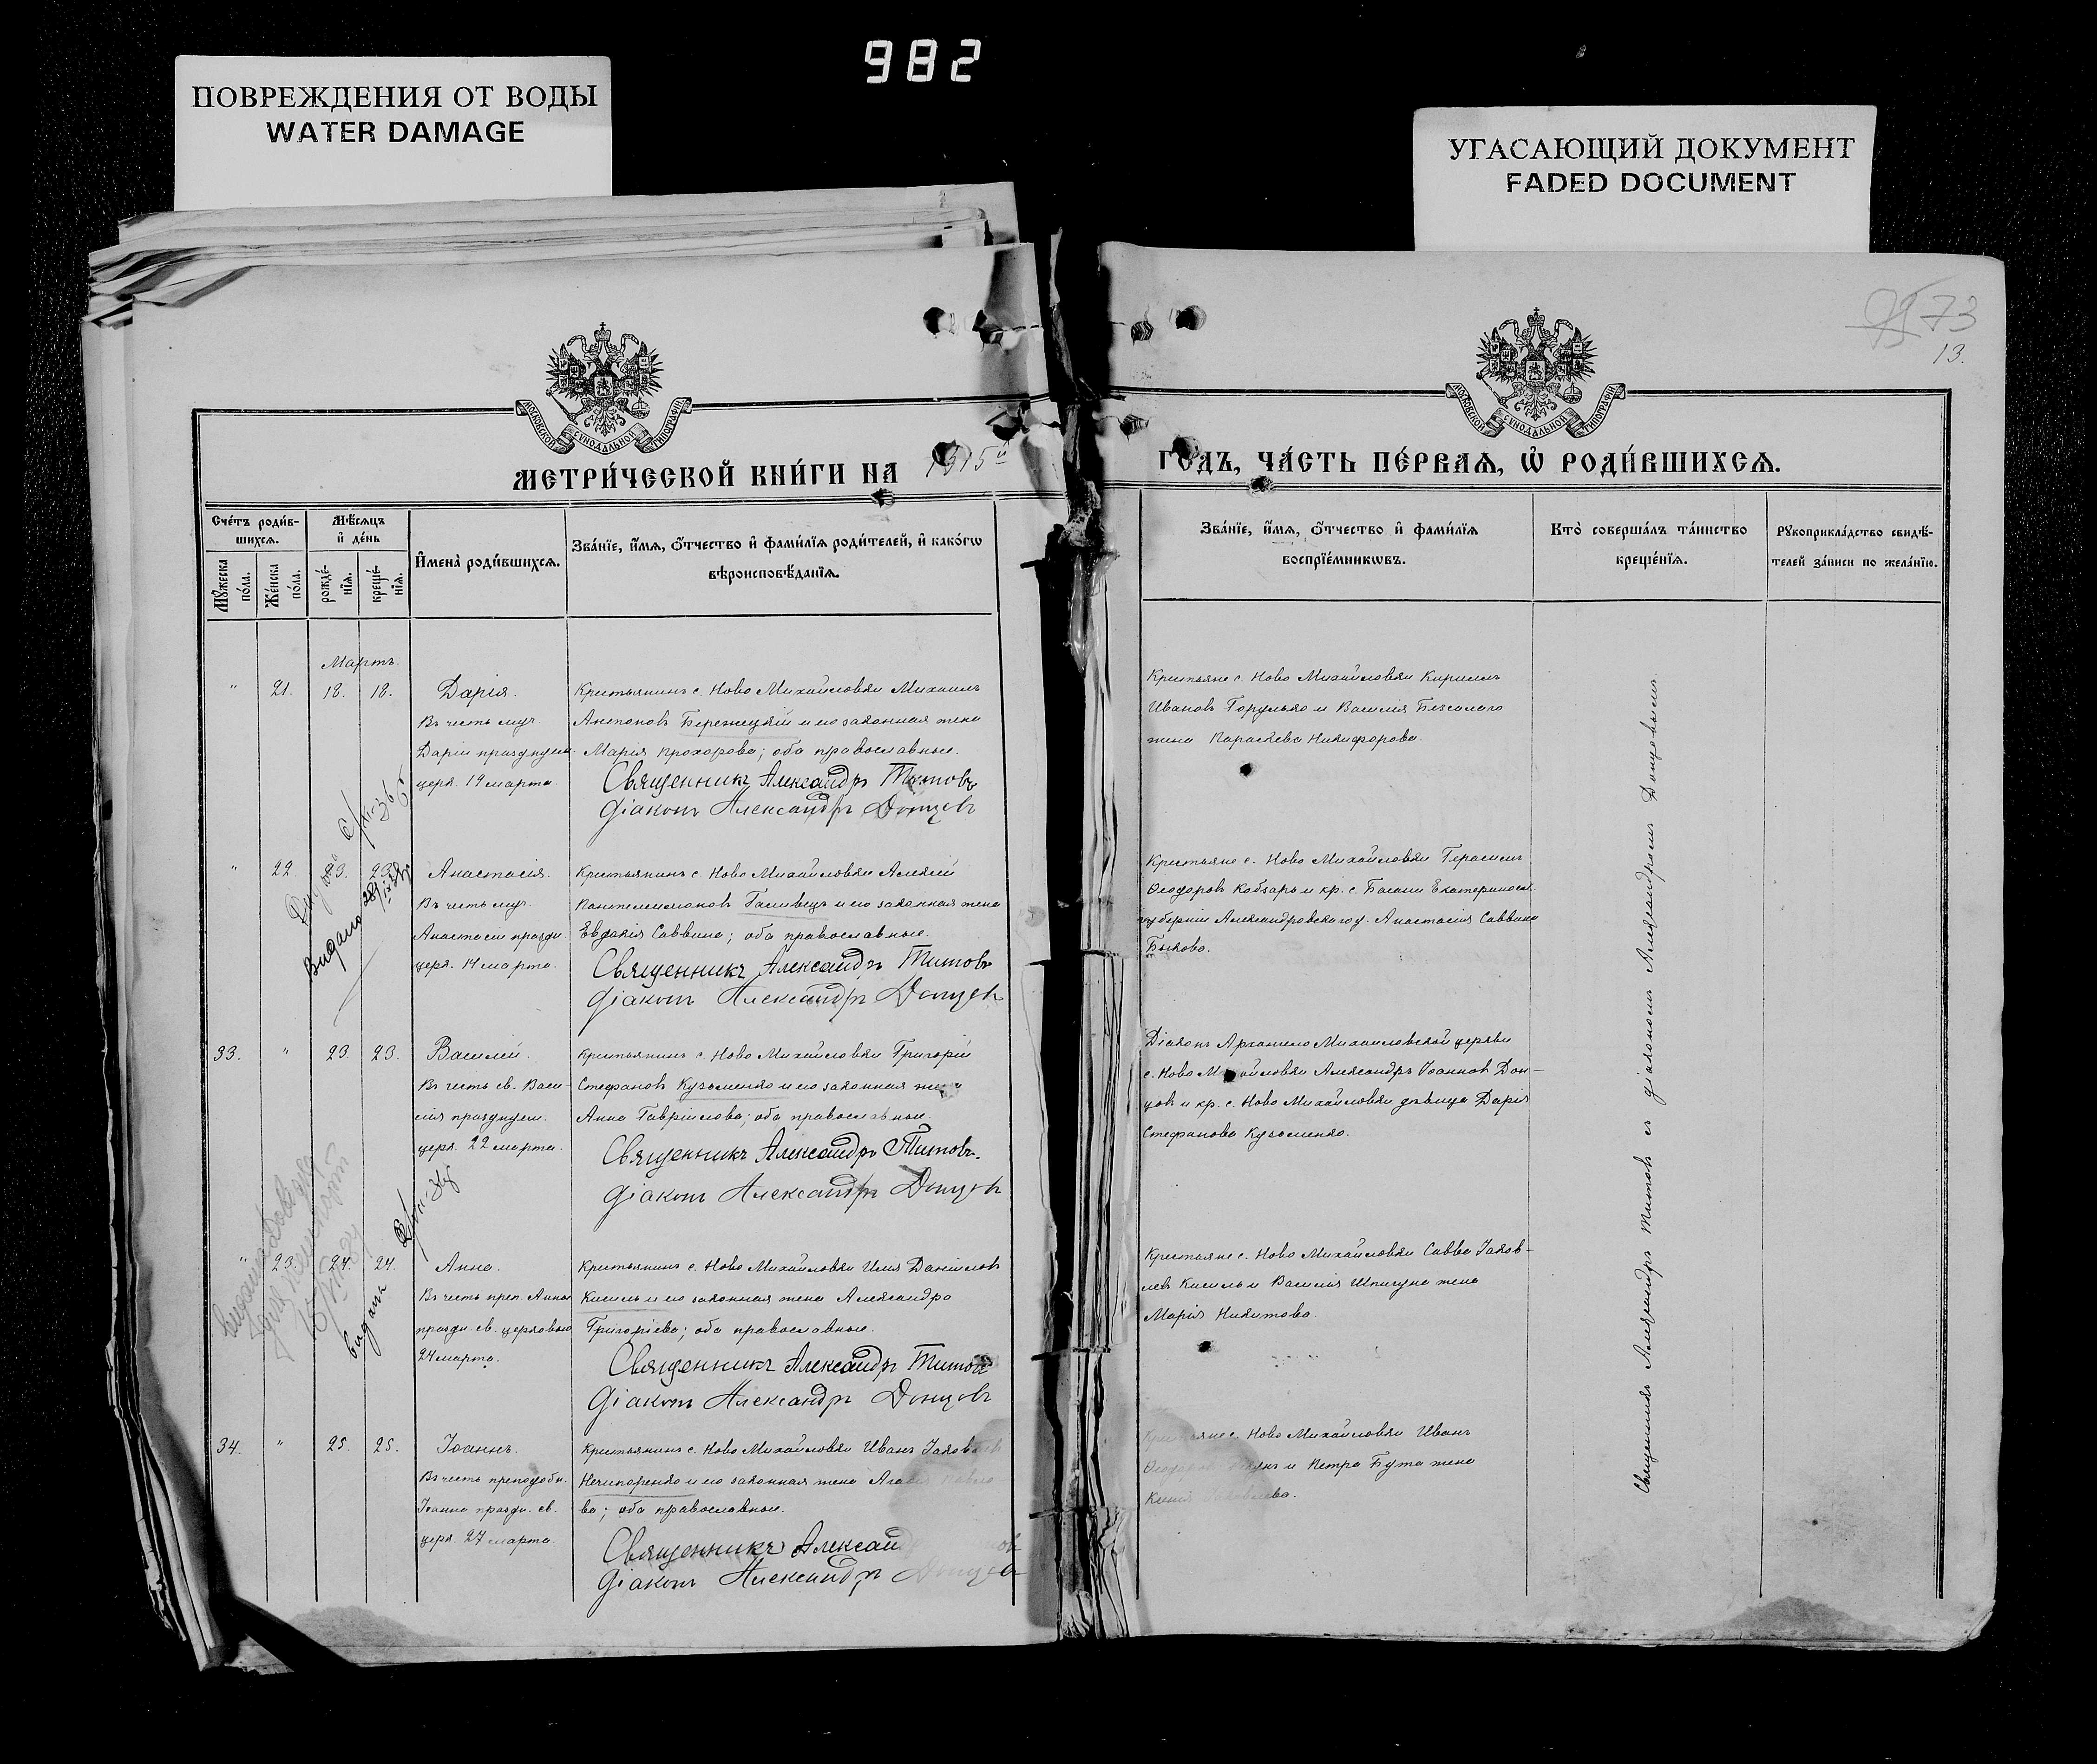 982
ПОВРЕЖДЕНИЯ ОТ ВОДЫ
WATER DAMAGE
УГАСАЮЩИЙ ДОКУМЕНТ
FADED DOCUMENT
73
13.
МОСКОВСКОЙ СУНОДАЛЬНОЙ ТИПОГРАФІИ
МОСКОВСКОЙ СУНОДАЛЬНОЙ ТИПОГРАФІИ
МЕТРИ́ЧЕСКОЙ КНИ́ГИ НА 1915й ГО́ДЪ, ЧА́СТЬ ПЕ́РВАѦ, Ѡ҆ РОДИ́ВШИХСѦ.
Сче́тъ роди́вшихсѧ.
Мꙋ́жеска по́ла.
Же́нска по́ла.
Мѣ́сѧцъ и҆ де́нь
рожде́нїѧ.
креще́нїѧ.
И҆мена̀ роди́вшихсѧ.
Зва́нїе, и҆́мѧ, ѻ҆́тчество и҆ фами́лїѧ роди́телей, и҆ како́гѡ
вѣроисповѣ́данїѧ.
Зва́нїе, и҆́мѧ, ѻ҆́тчество и҆ фами́лїѧ
воспрїе́мникѡвъ.
Кто̀ соверша́лъ та́инство
креще́нїѧ.
Рꙋкоприкла́дство свидѣ́-
телей за́писи по жела́нїю.
Мартъ.
" 21. 18. 18. Дарія.
Въ честь муч.
Даріи празднуем.
церк. 19 марта
Крестьянинъ с. Ново Михайловки Михаилъ
Антоновъ Бережецкій и его законная жена
Марія Прохорова; оба православные.
Священникъ Александръ Титовъ
Діаконъ Александръ Донцовъ
Крестьяне с. Ново Михайловки Кириллъ
Ивановъ Горулько и Василія
жена Параскева Никифорова.
" 22. 23. 23. Анастасія.
Въ честь муч.
Анастасіи праздн.
церк. 14 марта.
Крестьянинъ с. Ново Михайловки Алексій
Пантелеимоновъ Галивецъ и его законная жена
Евдокія Саввина; оба православные.
Священникъ Александръ Титовъ
Діаконъ Александръ Донцовъ
Крестьяне с. Ново Михайловки Герасимъ
Ѳеодоровъ Кобзарь и кр. с. Екатериносл.
губерніи Александровскаго у. Анастасія Саввина
Быкова.
33. " 23. 23. Василій.
Въ честь св. Васи-
лія празднуем.
церк. 22 марта.
Крестьянинъ с. Ново Михайловки Григорій
Стефановъ Кузьменко и его законная жена
Анна Гавріилова; оба православные.
Священникъ Александръ Титовъ.
Діаконъ Александръ Донцовъ
Діаконъ Архангело Михайловской церкви
с. Ново Михайловки Александръ Іоанновъ Дон-
цовъ и кр. с. Ново Михайловки дѣвица Дарія
Стефанова Кузьменко.
" 23. 24. 24. Анна.
Въ честь преп. Анны
праздн. св. церковью
24 марта.
Крестьянинъ с. Ново Михайловки Илія Даніиловъ
Кисиль и его законная жена Александра
Григоріева; оба православные.
Священникъ Александръ Титовъ
Діаконъ Александръ Донцовъ
Крестьяне с. Ново Михайловки Савва Іаков-
левъ Кисиль и Василія Шпигуна жена
Марія Никитова.
34. " 25. 25. Іоаннъ.
Въ честь преподобн.
Іоанна праздн. св.
церк. 27 марта.
Крестьянинъ с. Ново Михайловки Иванъ Іаковлевъ
Нечипоренко и его законная жена
ва; оба православные.
Священникъ Александ
Діаконъ Александръ Донцовъ
с. Ново Михайловки Иванъ
и Петра Бута жена
Священникъ Александръ Титовъ съ діакономъ Александромъ Донцовымъ.